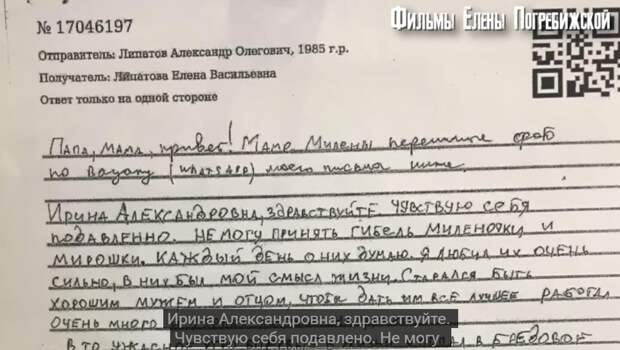 Фильмы Елены Погребижской
№ 17046197
Отправитель: Липатов Александр Олегович, 1985 г.р.
Получатель: Липатова Елена Васильевна
Ответ только на одной стороне
Папа, мама, привет! Маме Милены перешлите фото
по вацапу (WhatsApp) моего письма ниже.
Ирина Александровна, здравствуйте. Чувствую себя
подавленно. Не могу принять гибель Миленочки и
Мирошки. Каждый день о них думаю. Я любил их очень
сильно, в них был мой смысл жизни. Старался быть
хорошим мужем и отцом, чтобы дать им все лучшее. Работал
очень много
Ирина Александровна, здравствуйте.
Чувствую себя подавлено. Не могу
В то